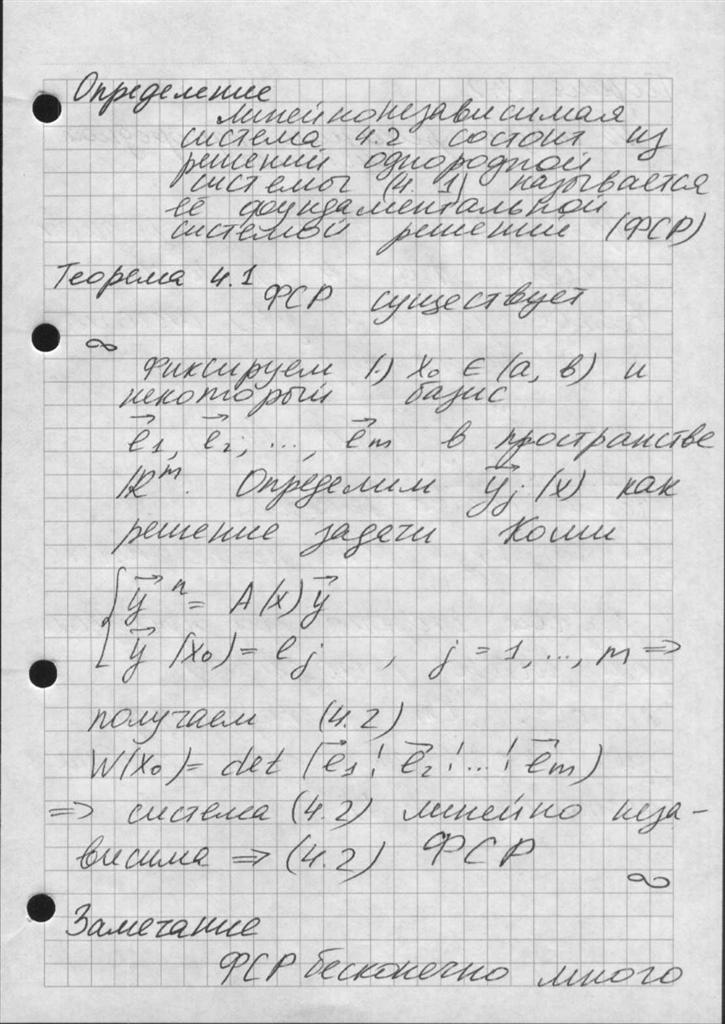 Определение
линейнонезависимая
система 4.2 состоит из
решений однородной
системы (4.1) называется
её фундаментальной
системой решений (ФСР)
Теорема 4.1
ФСР существует
∞
Фиксируем 1.) x₀ ∈ (a, в) и
некоторый базис
e⃗₁, e⃗₂, ..., e⃗m в пространстве
ℝᵐ. Определим y⃗j(x) как
решение задачи Коши
{ y⃗ ⁿ = A(x)y⃗
y⃗ (x₀) = ej , j = 1, ..., m ⇒
получаем (4.2)
W(x₀) = det (e⃗₁ ¦ e⃗₂ ¦ ... ¦ e⃗m)
⇒ система (4.2) линейно неза-
висима ⇒ (4.2) ФСР
∞
Замечание
ФСР бесконечно много